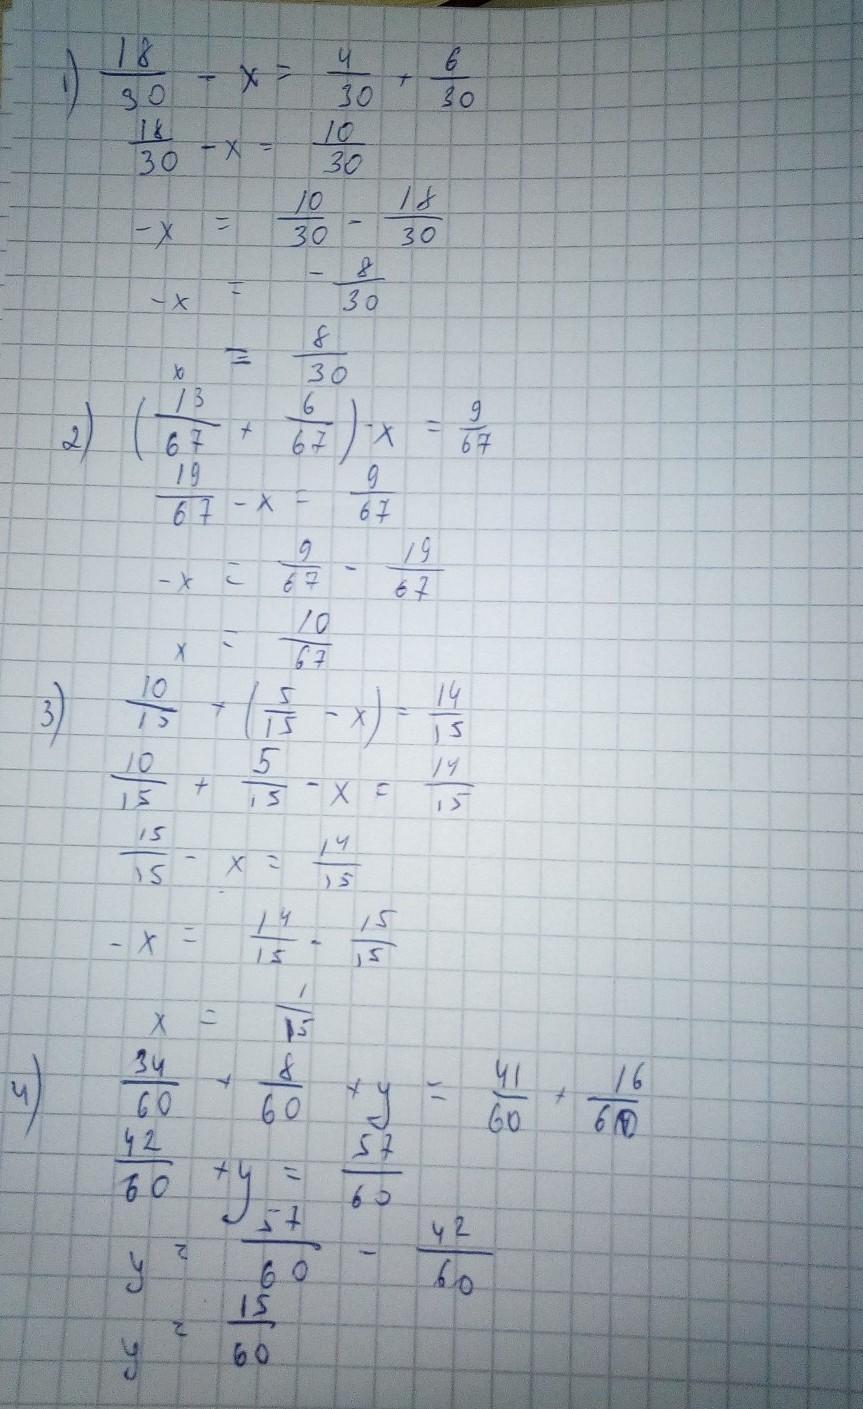 1) 18/30 - x = 4/30 + 6/30
18/30 - x = 10/30
-x = 10/30 - 18/30
-x = - 8/30
x = 8/30
2) (13/67 + 6/67) - x = 9/67
19/67 - x = 9/67
-x = 9/67 - 19/67
x = 10/67
3) 10/15 + (5/15 - x) = 14/15
10/15 + 5/15 - x = 14/15
15/15 - x = 14/15
-x = 14/15 - 15/15
x = 1/15
4) 34/60 + 8/60 + y = 41/60 + 16/60
42/60 + y = 57/60
y = 57/60 - 42/60
y = 15/60